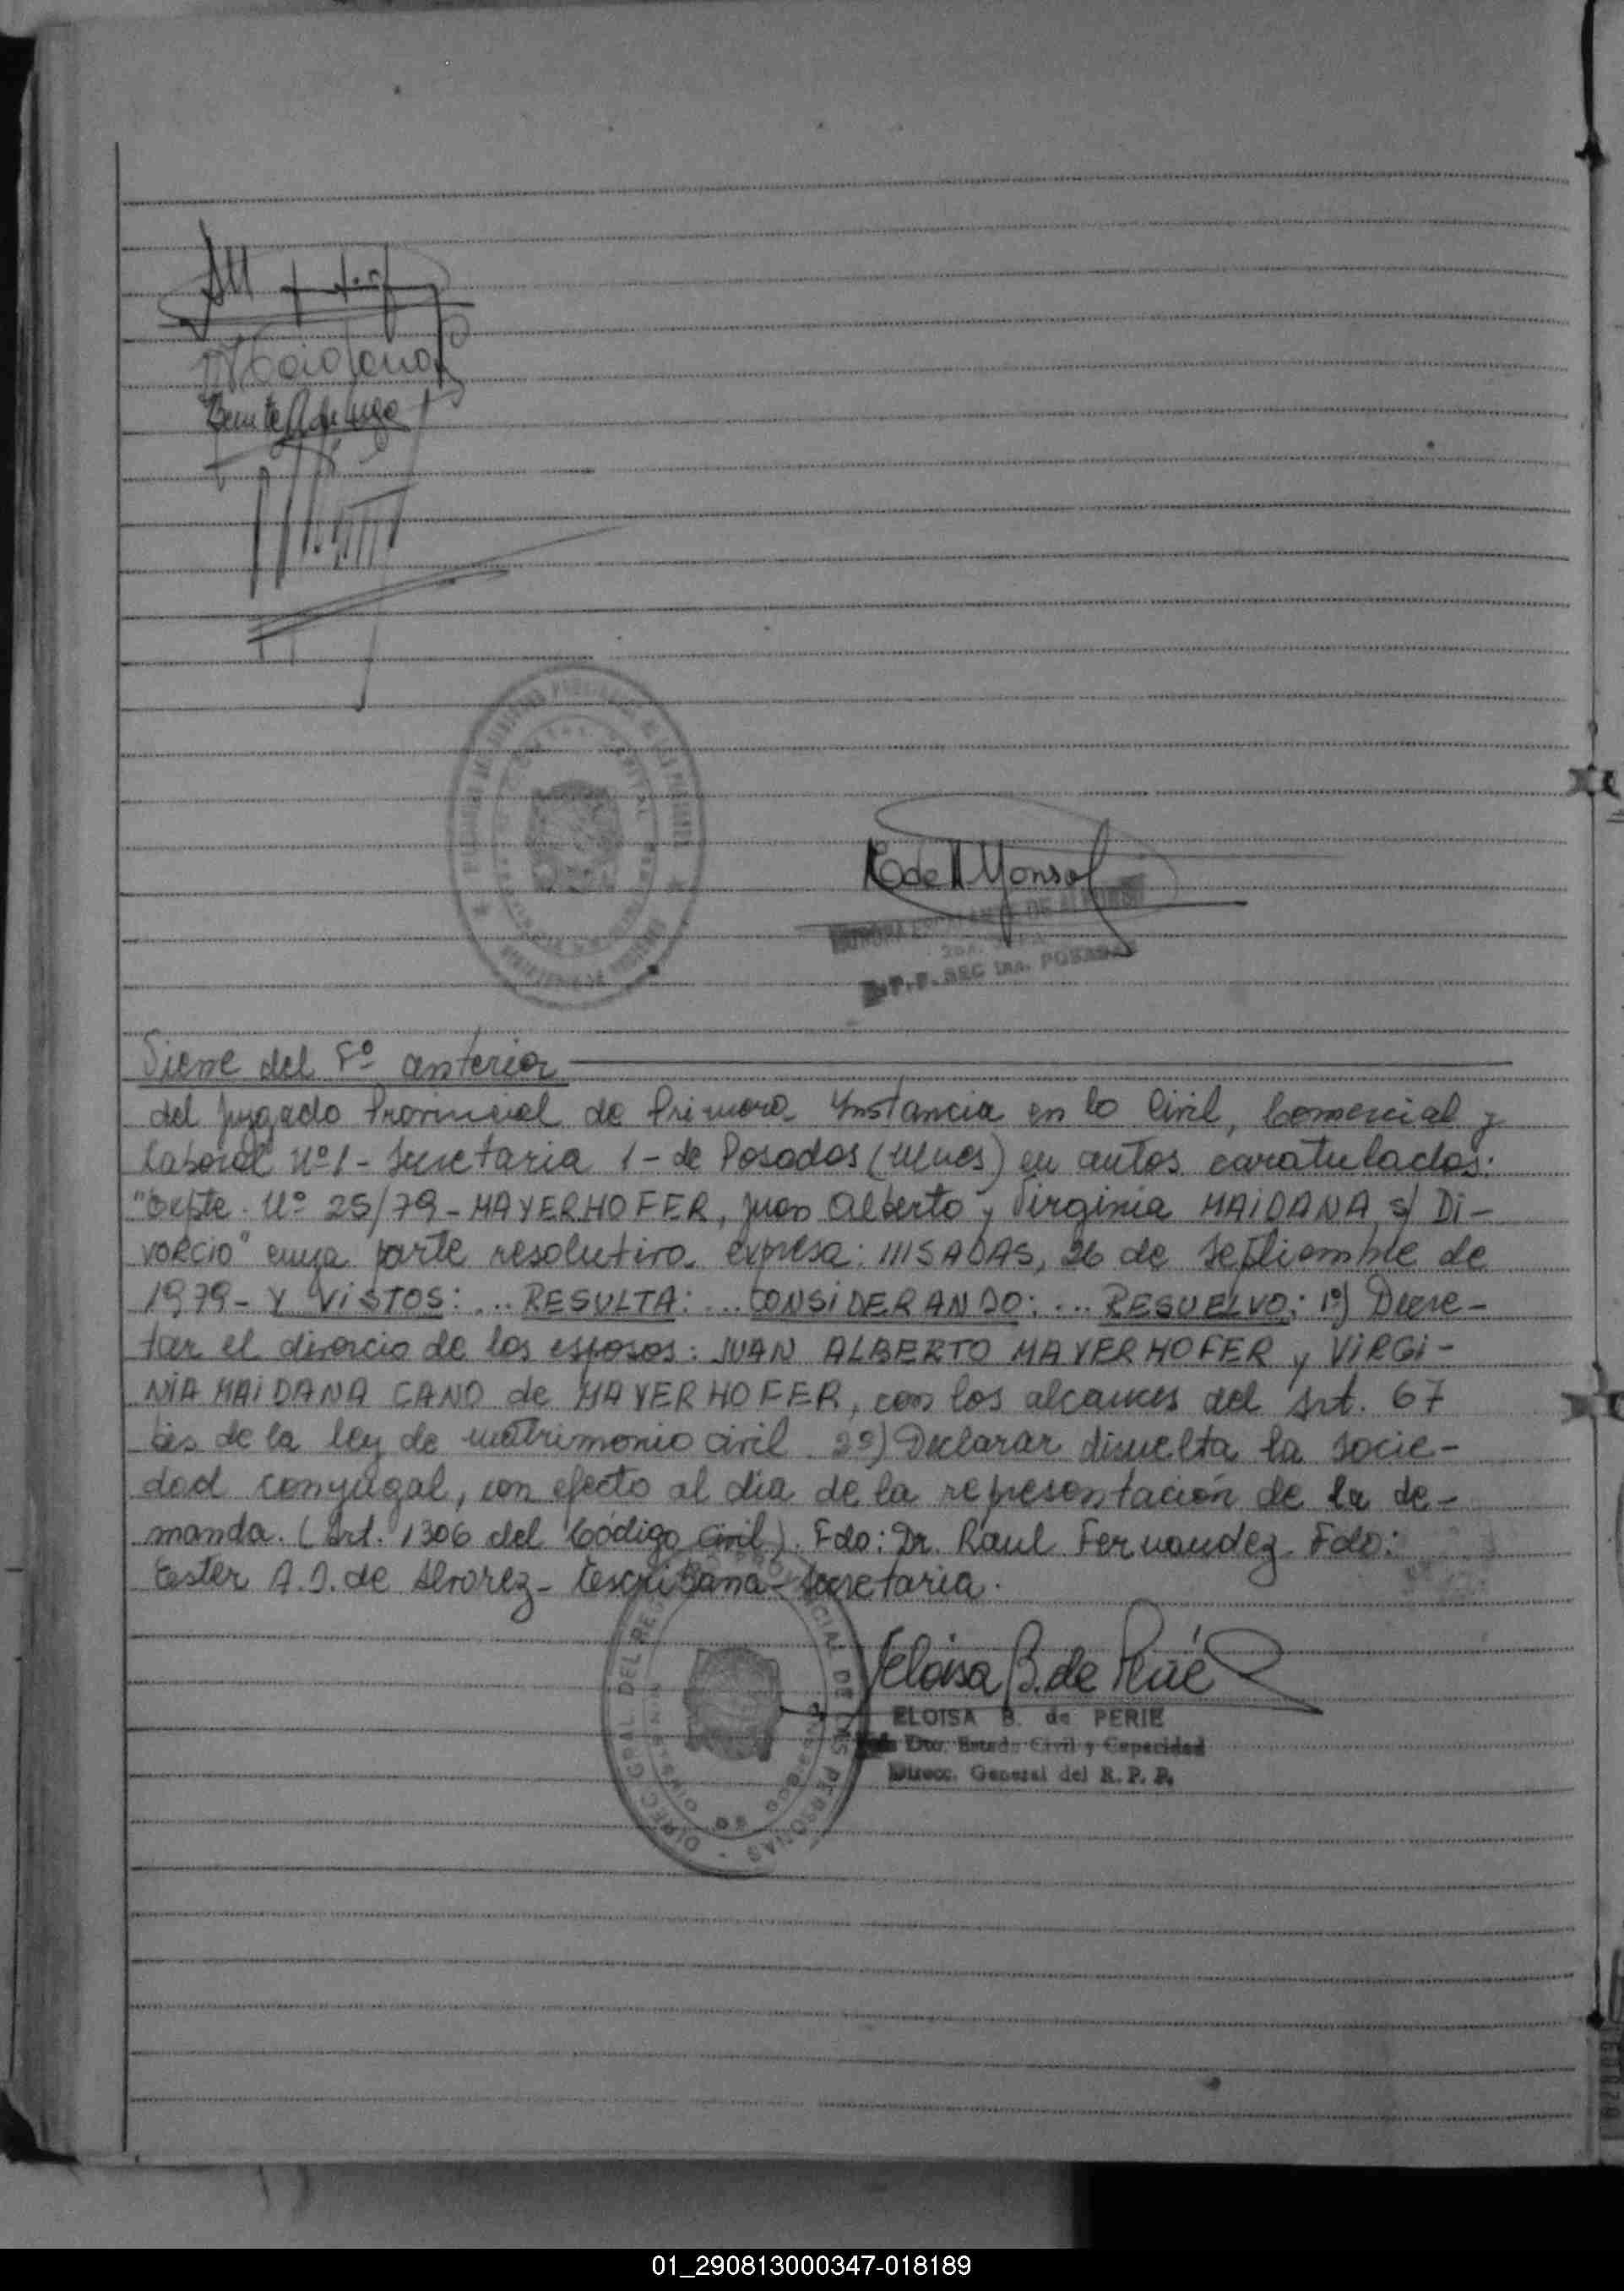 Benitez de Lugo
R.P.P. SEC 1ra. POSADAS
Viene del Fº anterior
del Juzgado Provincial de Primera Instancia en lo Civil, Comercial y
Laboral Nº 1 - Secretaria 1 - de Posadas (Mnes) en autos caratulados:
"Expte. Nº 25/79 - MAYERHOFER, Juan Alberto y Virginia MAIDANA s/ DI-
VORCIO" cuya parte resolutiva expresa: ///SADAS, 26 de Septiembre de
1979 - Y VISTOS: ... RESULTA: ... CONSIDERANDO: ... RESUELVO: 1º) Decre-
tar el divorcio de los esposos: JUAN ALBERTO MAYERHOFER y VIRGI-
NIA MAIDANA CANO de MAYERHOFER, con los alcances del Art. 67
bis de la ley de matrimonio civil. 2º) Declarar disuelta la socie-
dad conyugal, con efecto al dia de la representación de la de-
manda. (Art. 1306 del Código Civil). Fdo: Dr. Raul Fernandez. Fdo:
Ester A. I. de Alvorez - Escribana - Secretaria.
Eloisa B. de Perié
ELOISA B. de PERIE
Dto. Estado Civil y Capacidad
Direcc. General del R. P. P.
DIREC. GRAL. DEL REG. PROVINCIAL DE LAS PERSONAS
01_290813000347-018189